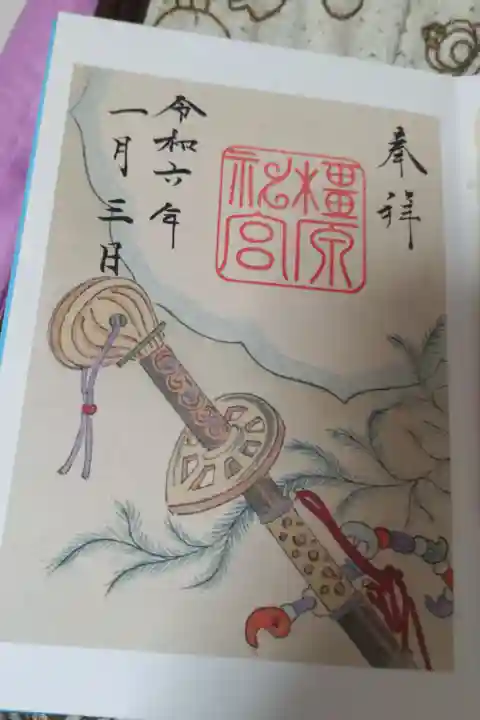 奉拝
橿原
神宮
令和六年
一月三日